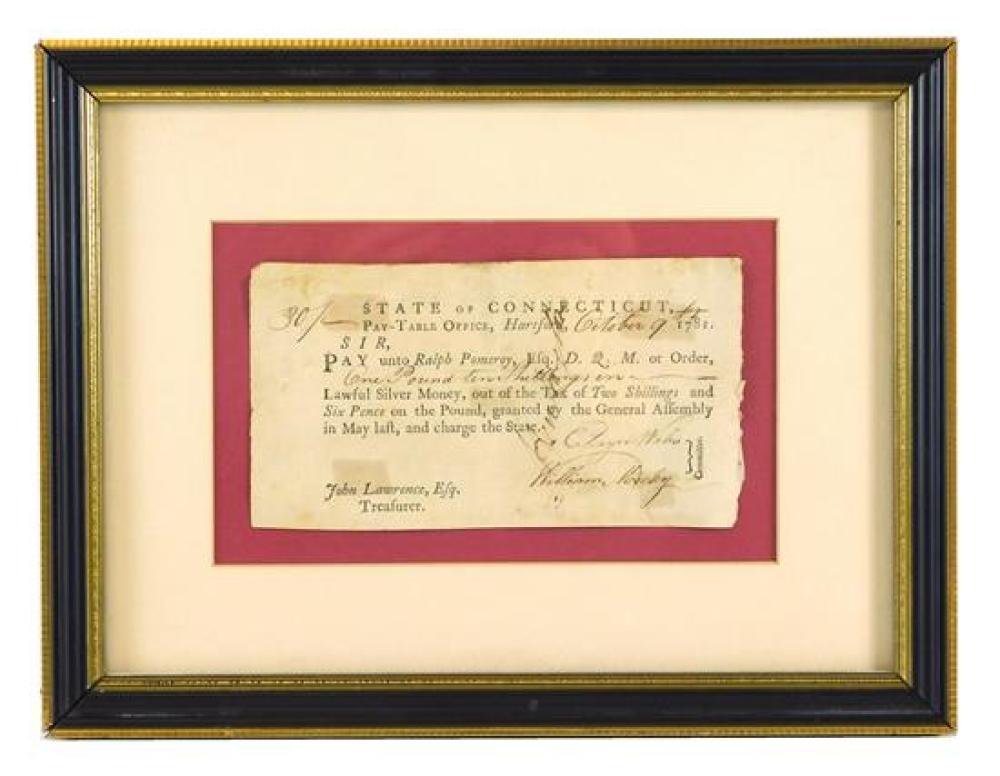 STATE OF CONNECTICUT,
30/— PAY-TABLE OFFICE, Hartford, October 9th 1781.
SIR,
PAY unto Ralph Pomeroy, Esq. D. Q. M. or Order,
One Pound ten Shillings in
Lawful Silver Money, out of the Tax of Two Shillings and
Six Pence on the Pound, granted by the General Assembly
in May laſt, and charge the State.
William
John Lawrence, Eſq.
Treaſurer.